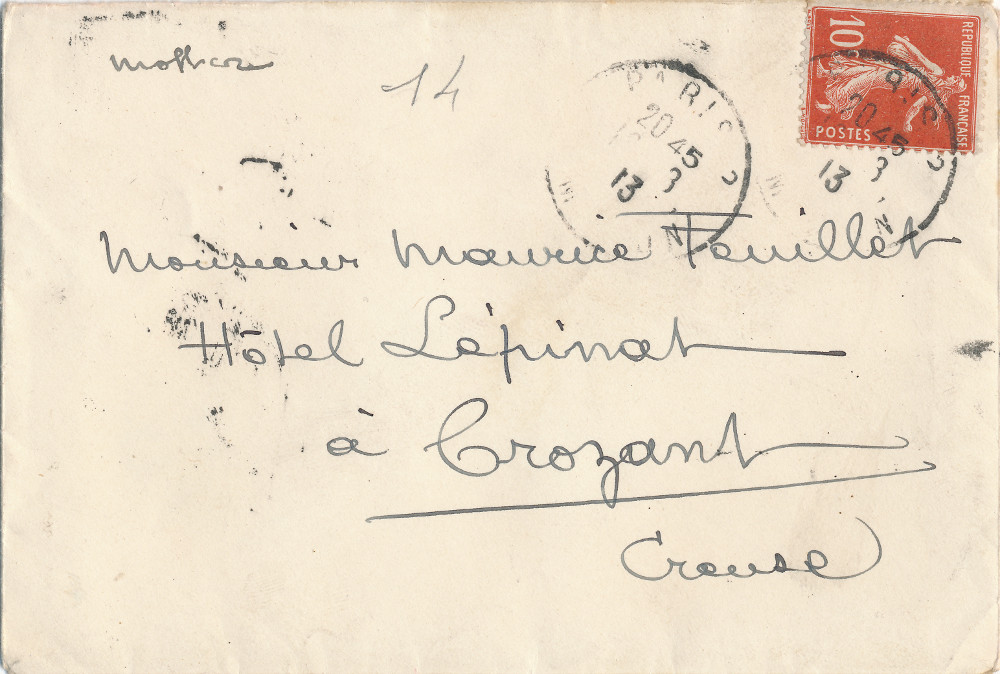 14
10
REPUBLIQUE FRANÇAISE
POSTES
PARIS
20 45
13
PARIS
20 45
13
Monsieur Maurice Fouillet
Hôtel Lépinat
à Crozant
Creuse